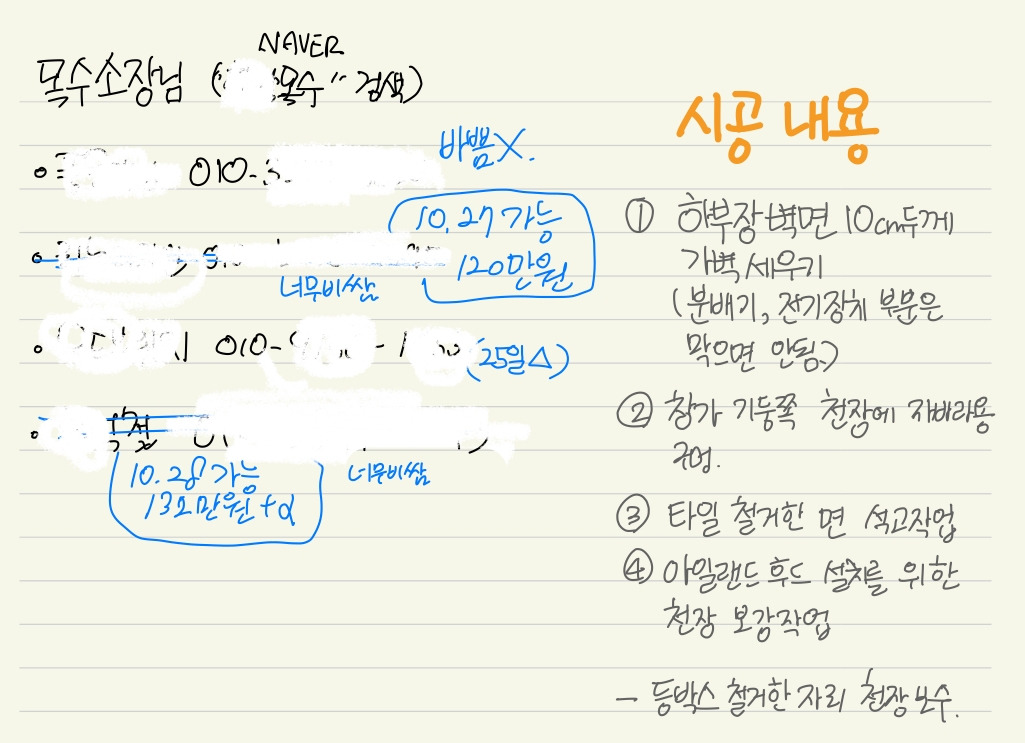 NAVER
목수소장님 ( 목수" 검색)
010-3
바쁨X.
10.27 가능
120만원
너무비쌈
010-9 - 1
(25일△)
10.28 가능
132만원+α
너무비쌈
시공 내용
① 하부장 벽면 10cm두께
가벽 세우기
(분배기, 전기장치 부분은
막으면 안됨.)
② 창가 기둥쪽 천장에 자바라용
구멍.
③ 타일 철거한 면 석고작업
④ 아일랜드 후드 설치를 위한
천장 보강작업
- 등박스 철거한 자리 천장 보수.